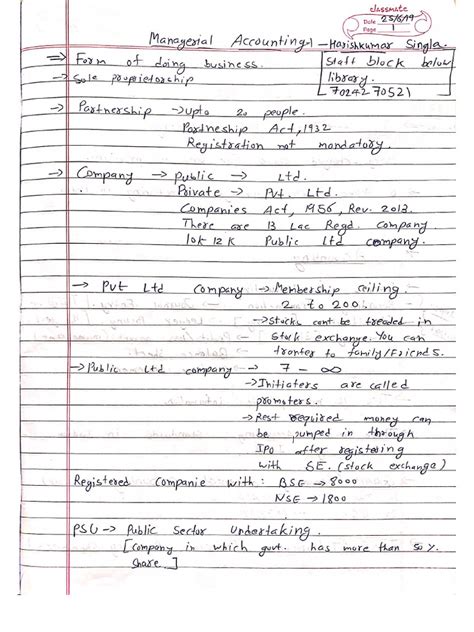 classmate
Date 25/6/19
Page 1
Managerial Accounting-1 - Harishkumar Singla.
Staff block below
library.
7024270521
⇒ Form of doing business.
→ Sole proprietorship
→ Partnership → upto 20 people.
Partneship Act, 1932
Registration not mandatory.
→ Company → public → Ltd.
Private → Pvt. Ltd.
Companies Act, 1956, Rev. 2013.
There are 13 Lac Regd. company.
10k 12k Public Ltd company.
→ Pvt Ltd company → Membership ceiling.
2 to 200.
→ Stocks cant be treaded in
stock exchange. You can
tranfer to family/Friends.
→ Public Ltd company → 7 - ∞
→ Initiaters are called
promoters.
→ Rest required money can
be pumped in through
IPO after registering
with SE. (stock exchange)
Registered Companie with : BSE → 8000
NSE → 1800
PSU → Public Sector Undertaking.
[Company in which govt. has more than 50%
share.]